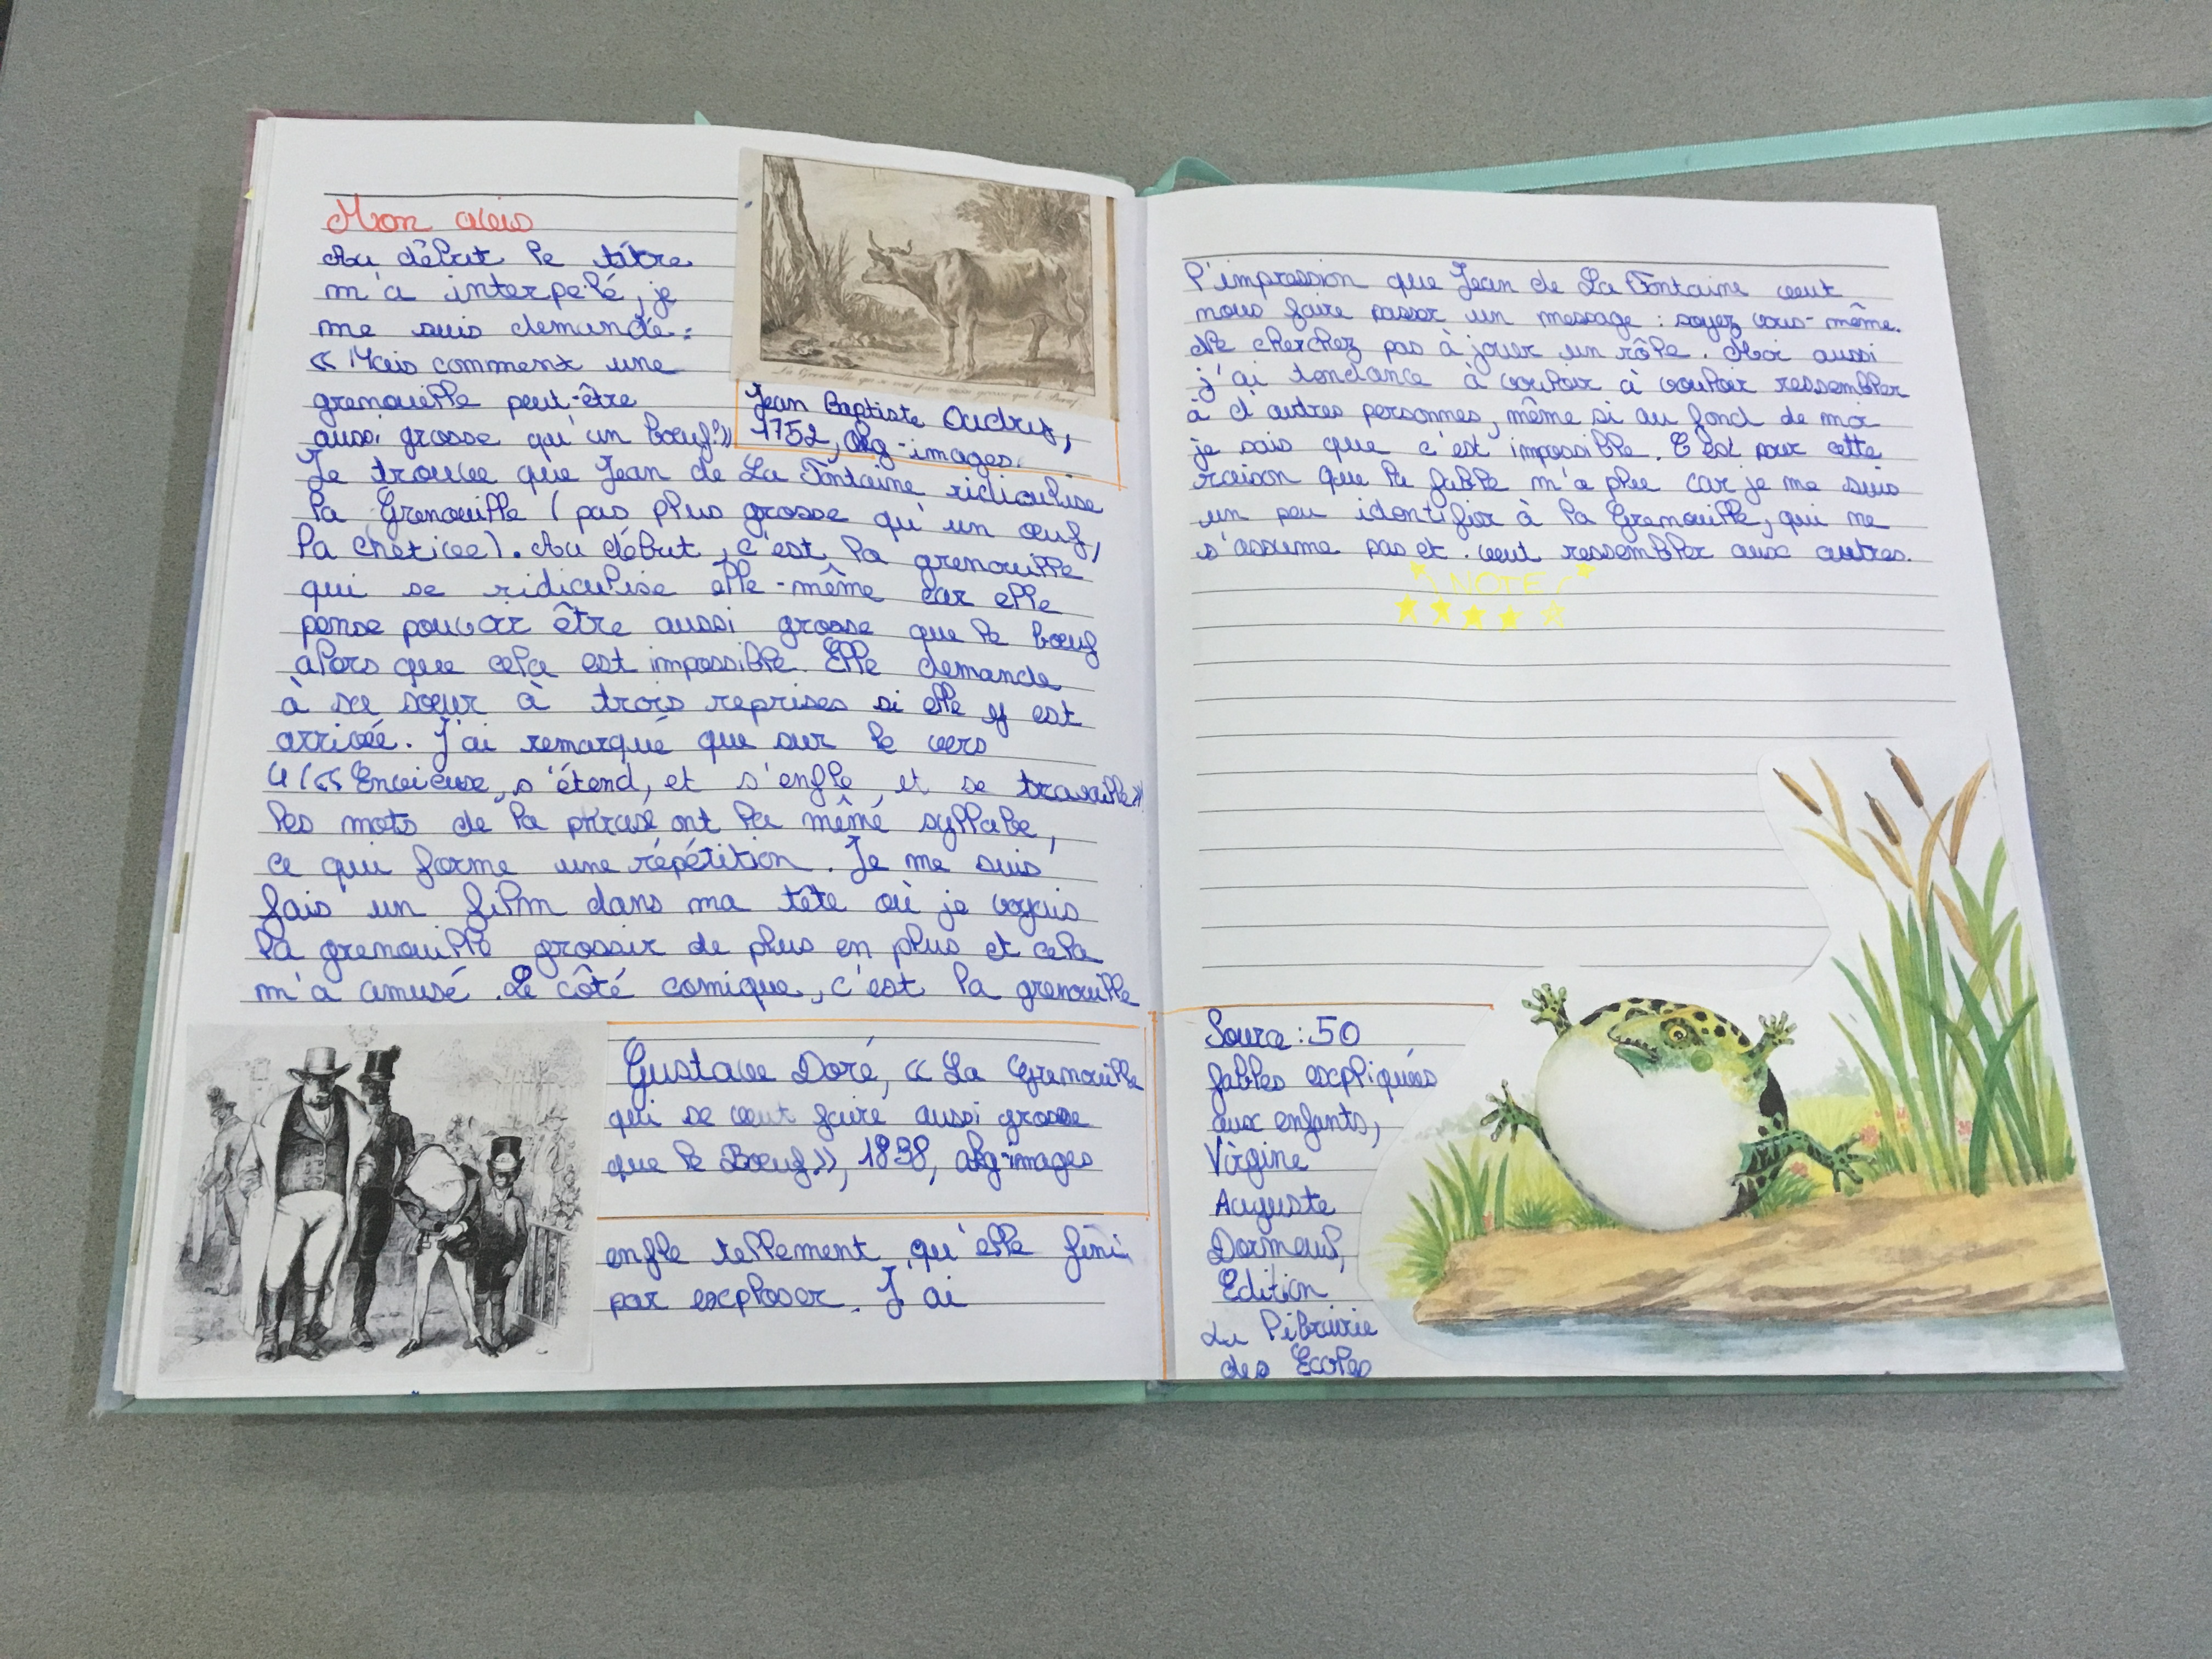 Mon avis
Au début le titre
m'a interpelé, je
me suis demandé :
« Mais comment une
grenouille peut-être
aussi grosse qu'un bœuf? »
La Grenouille qui se veut faire aussi grosse que le Bœuf
Jean Baptiste Oudry,
1752, akg-images.
Je trouve que Jean de La Fontaine ridiculise
la Grenouille (pas plus grosse qu'un œuf,
la chetive). Au début, c'est la grenouille
qui se ridiculise elle-même car elle
pense pouvoir être aussi grosse que le bœuf
alors que cela est impossible. Elle demande
à sa sœur à trois reprises si elle y est
arrivée. J'ai remarqué que sur le vers
4 (« Envieuse, s'étend, et s'enfle et se travaille »
les mots de la phrase ont la même syllabe,
ce qui forme une répétition. Je me suis
fais un film dans ma tête où je voyais
la grenouille grossir de plus en plus et cela
m'a amusé. Le côté comique, c'est la grenouille
Gustave Doré, « La Grenouille
qui se veut faire aussi grosse
que le Bœuf », 1838, akg-images
enfle tellement qu'elle fini
par exploser. J'ai
l'impression que Jean de La Fontaine veut
nous faire passer un message : soyez vous-même.
Ne cherchez pas à jouer un rôle. Moi aussi
j'ai tendance à vouloir à vouloir ressembler
à d'autres personnes, même si au fond de moi
je sais que c'est impossible. C'est pour cette
raison que la fable m'a plue car je me suis
un peu identifier à la Grenouille, qui ne
s'assume pas et veut ressembler aux autres.
NOTE
Source : 50
fables expliquées
aux enfants,
Virgine
Auguste
Dormeuil,
Edition
La librairie
des Ecoles